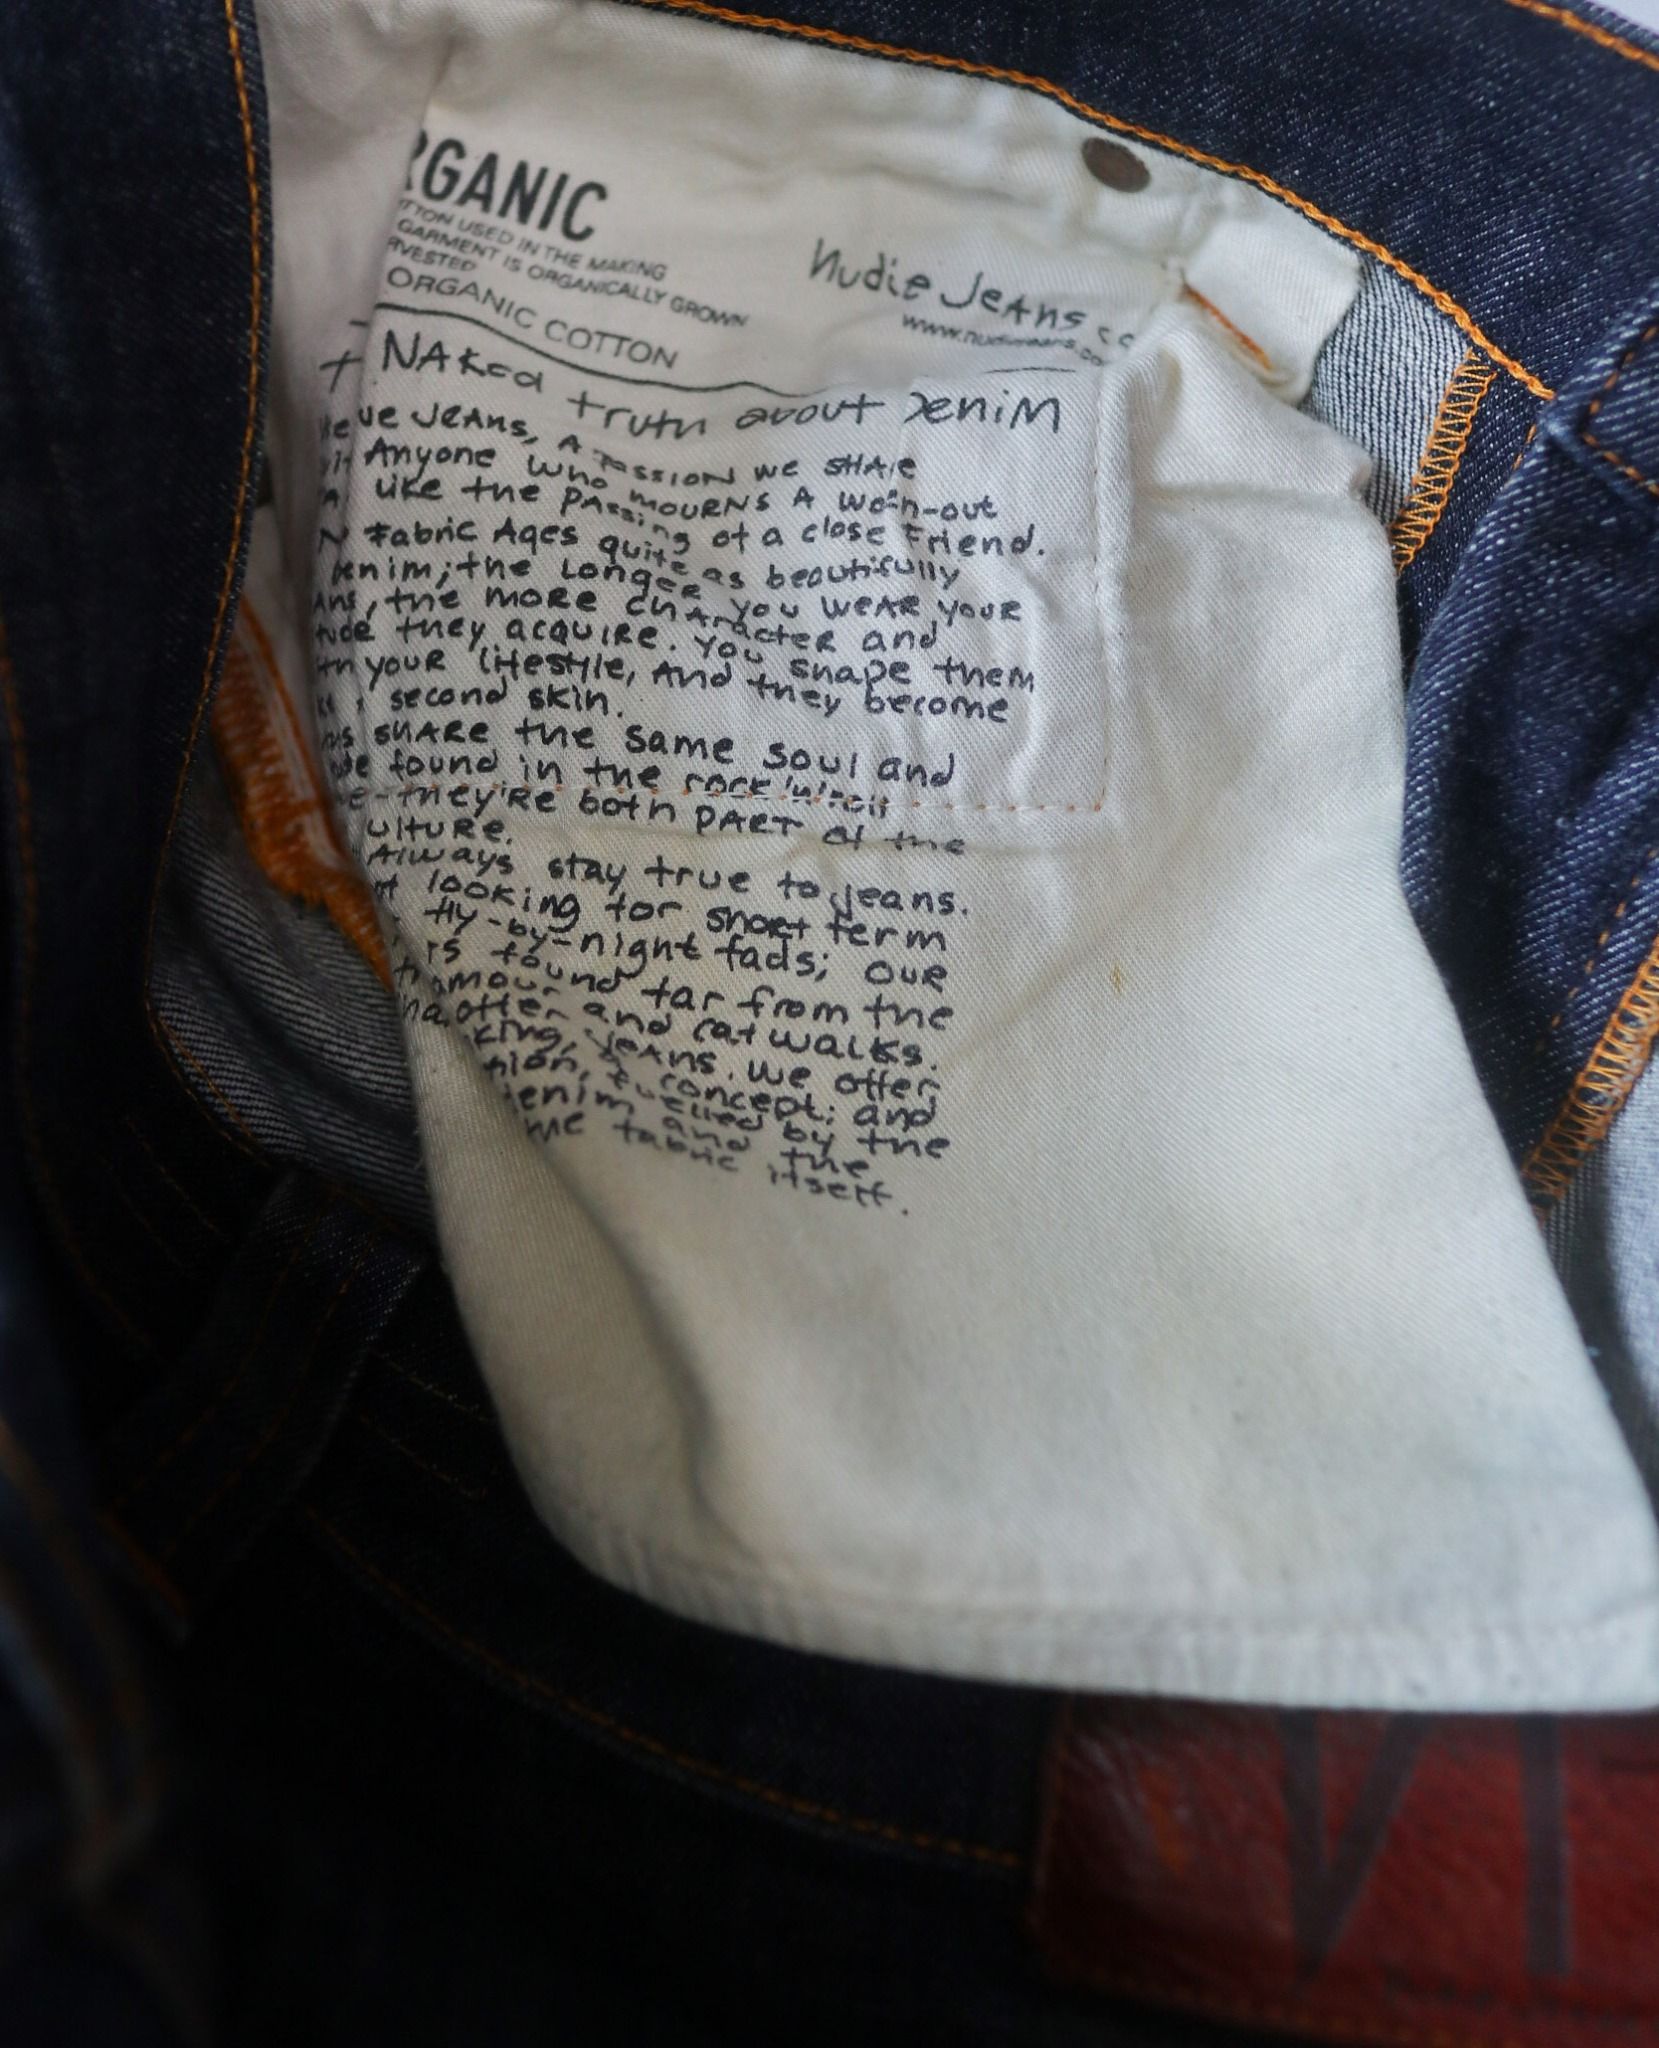 RGANIC
TTON USED IN THE MAKING
GARMENT IS ORGANICALLY GROWN
RVESTED
ORGANIC COTTON
Nudie Jeans co
www.nudiejeans.co
NAKed truth about Denim
ve JEANS, A PASSION we SHARE
Anyone who mourns A worn-out
like the passing of a close Friend.
Fabric Ages quite as beautifully
Denim; the Longer you wear your
ans, the more character and
tude they acquire. You shape them
th your lifestyle, And they become
second skin.
ns share the same soul and
ude found in the rock'n'roll
e-they're both PART of the
ulture.
Always stay true to jeans.
ot looking for short term
fly-by-night fads; our
is found far from the
amour and catwalks.
offer jeans. we offer
concept; and
fuelled by the
enim and the
the fabric itself.